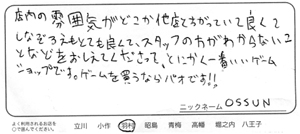 店内の雰囲気がどこか他店とちがっていて良くて
しなぞろえもとても良くて、スタッフの方がわからないこ
となどをおしえてくださって、とにかく一番いいゲーム
ショップです。ゲームを買うならバオです!!
ニックネーム OSSUN
よく利用されるお店を
○で囲んでください。
立川 小作 羽村 昭島 青梅 高幡 堀之内 八王子